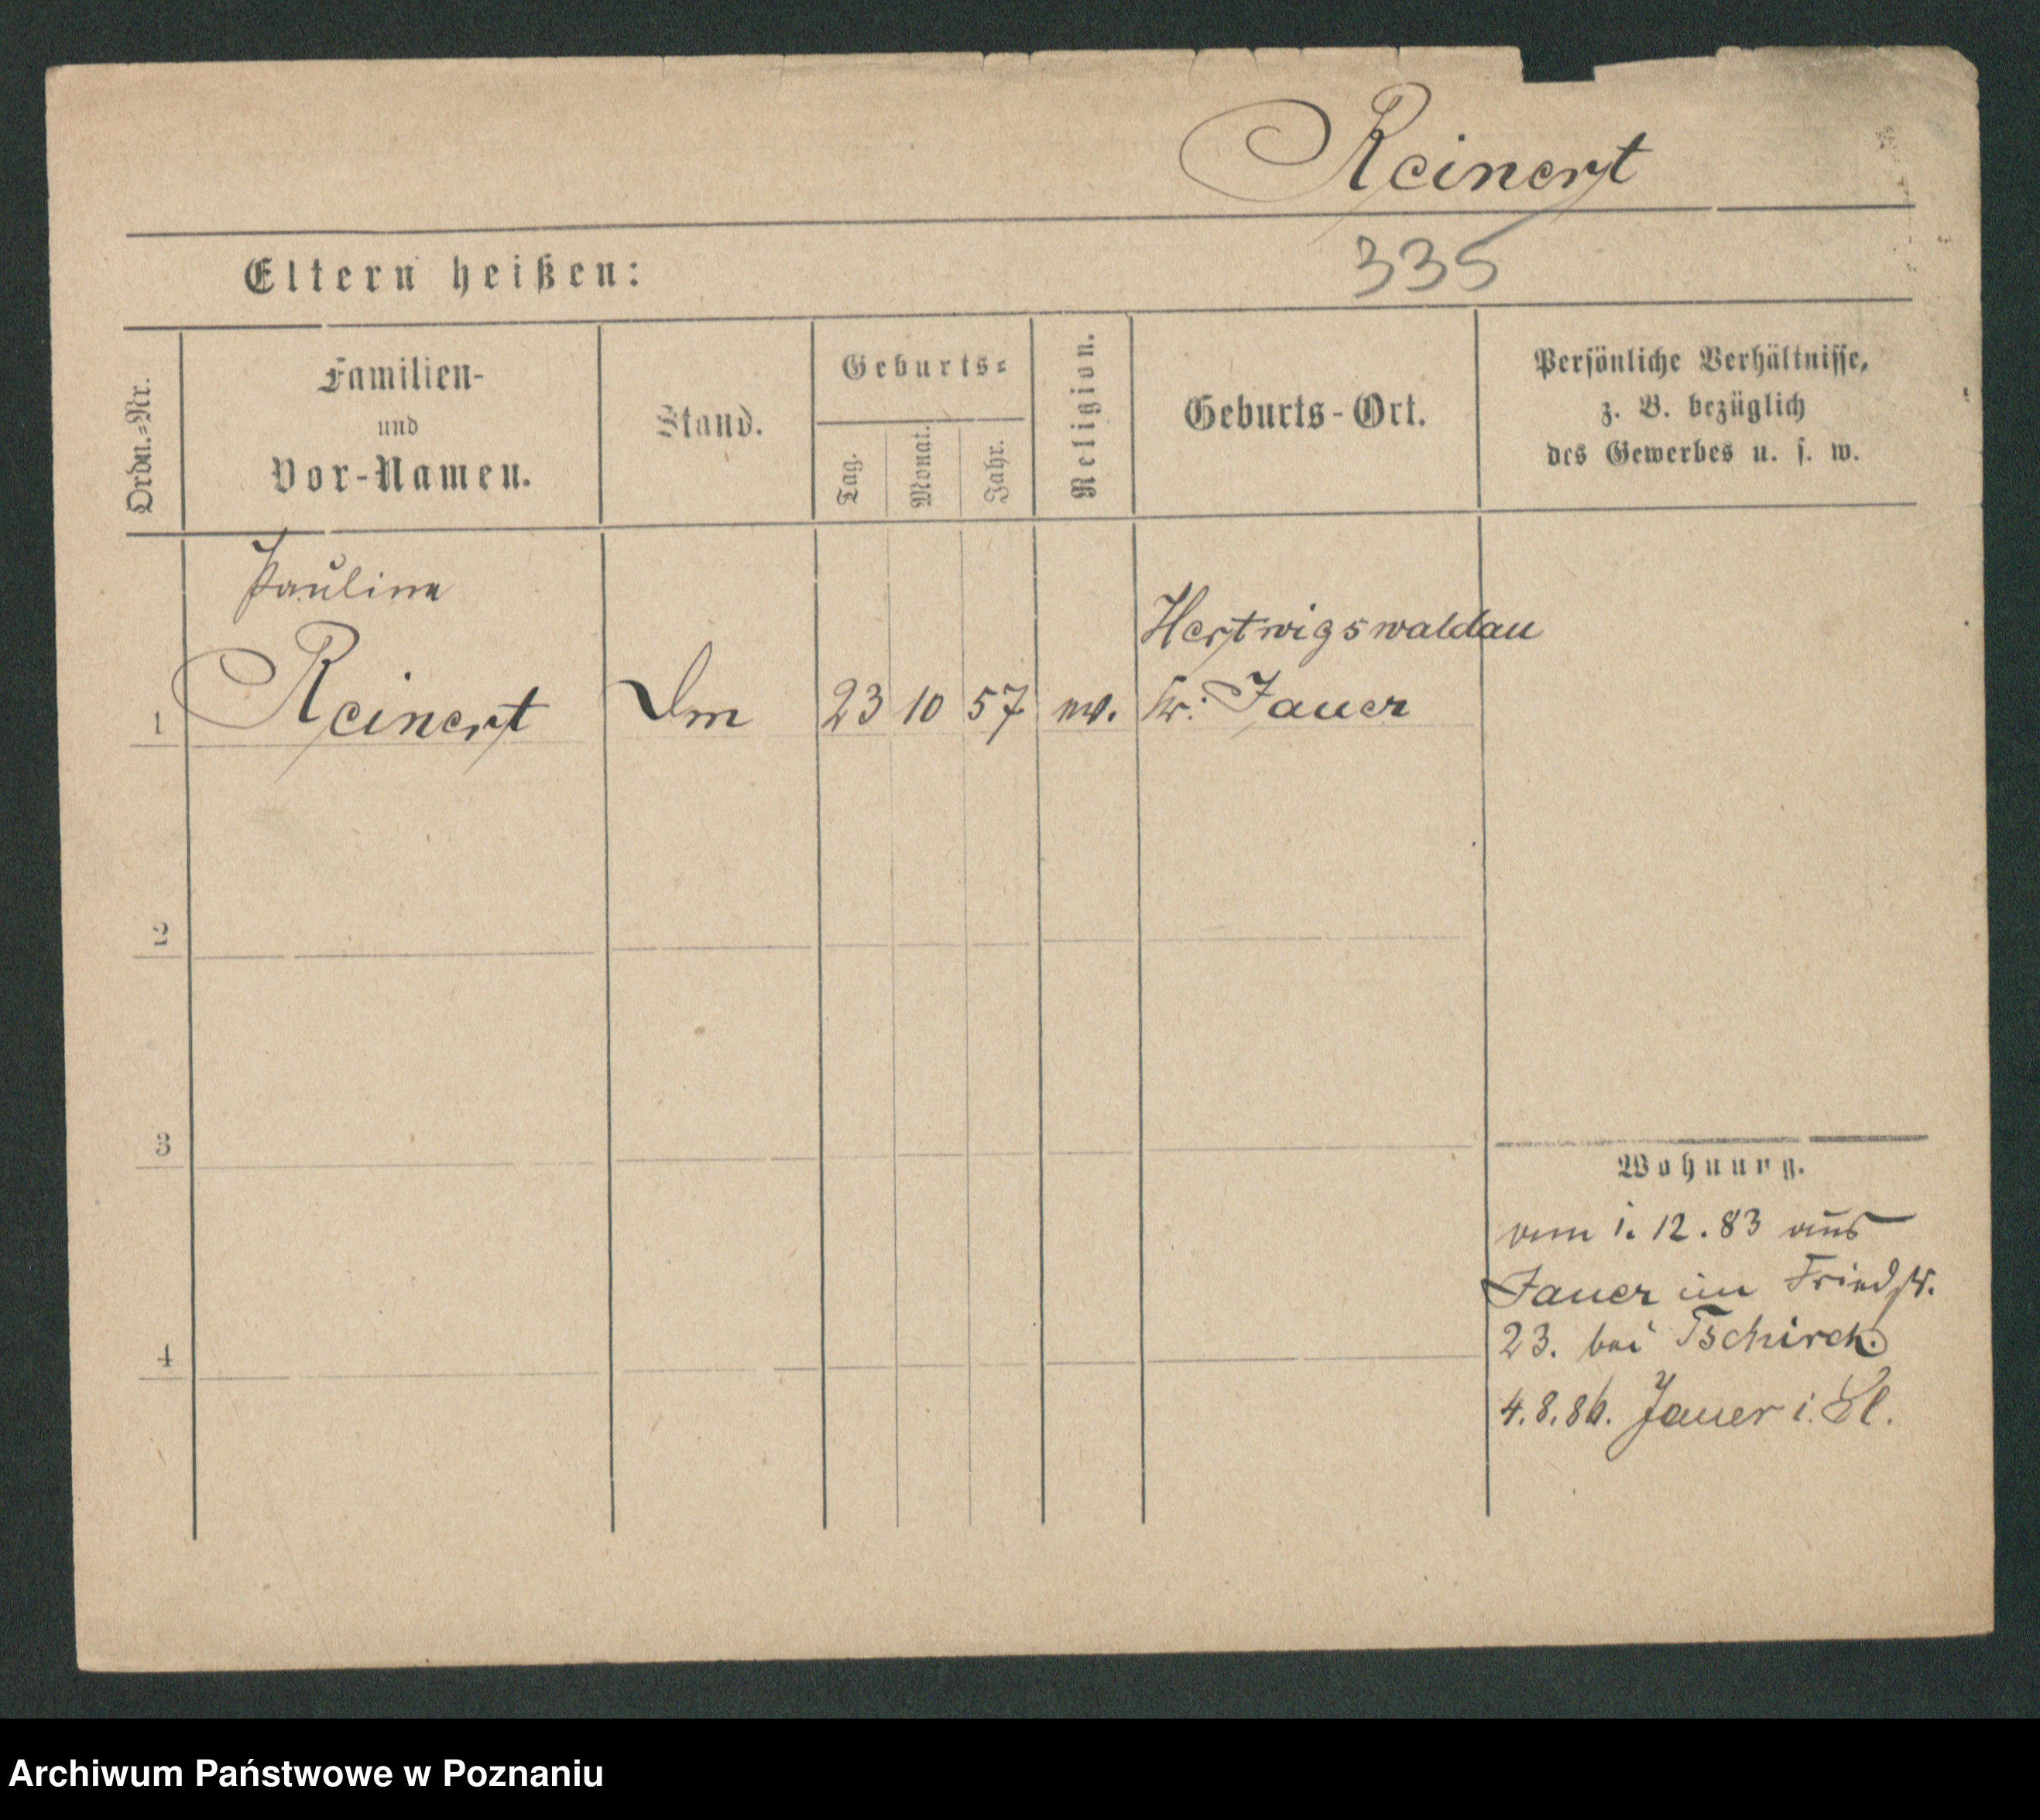 Reinert
Eltern heißen:
335
Ordn.=Nr.
Familien-
und
Vor-Namen.
Stand.
Geburts=
Tag.
Monat.
Jahr.
Religion.
Geburts-Ort.
Persönliche Verhältnisse,
z. B. bezüglich
des Gewerbes u. s. w.
Pauline
1 Reinert
23 10 57 ev.
Hertwigswaldau
Kr: Jauer
2
3
4
Wohnung.
vom 1. 12. 83 aus
Jauer im Friedstr.
23. bei Tschirch.
4.8.86. Jauer i. Sl.
Archiwum Państwowe w Poznaniu